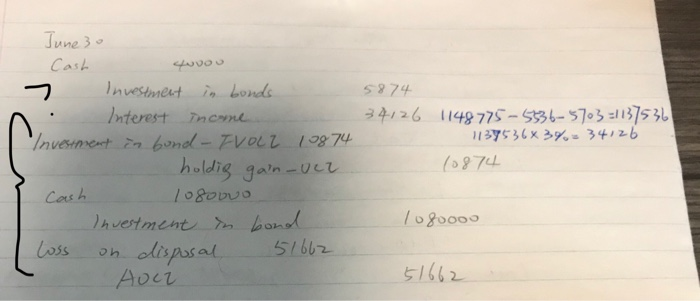 June 30
Cash 40000
Investment in bonds 5874
Interest income 34126 1148775-5536-5703=1137536
1137536×3%=34126
Investment in bond-FVOCI 10874
holdig gain-OCI 10874
Cash 1080000
Investment in bond 1080000
Loss on disposal 51662
AOCI 51662